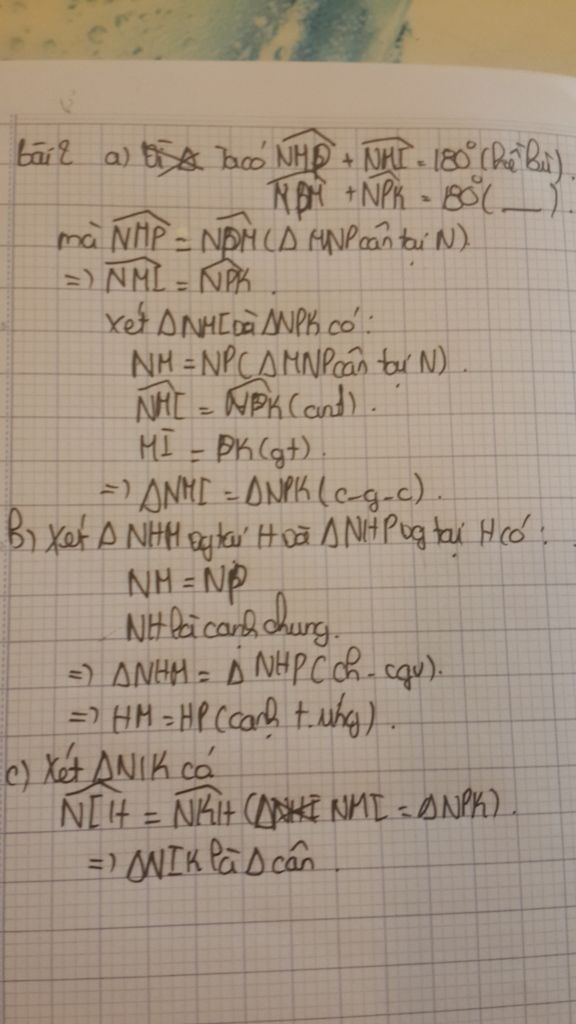 bài 2 a) Ta có NMP + NMI = 180° (kề bù).
NPM + NPK = 180° ( __ ).
mà NMP = NPM (Δ MNP cân tại N)
=> NMI = NPK.
Xét ΔNMI và ΔNPK có:
NM = NP (ΔMNP cân tại N).
NMI = NPK (cmt).
MI = PK (gt).
=> ΔNMI = ΔNPK (c-g-c).
b) Xét Δ NHM vg tại H và ΔNHP vg tại H có:
NM = NP
NH là cạnh chung.
=> ΔNHM = Δ NHP (ch - cgv).
=> HM = HP (cạnh t.ứng).
c) Xét ΔNIK có
NIH = NKH (Δ NMI = ΔNPK).
=> ΔNIK là Δ cân.